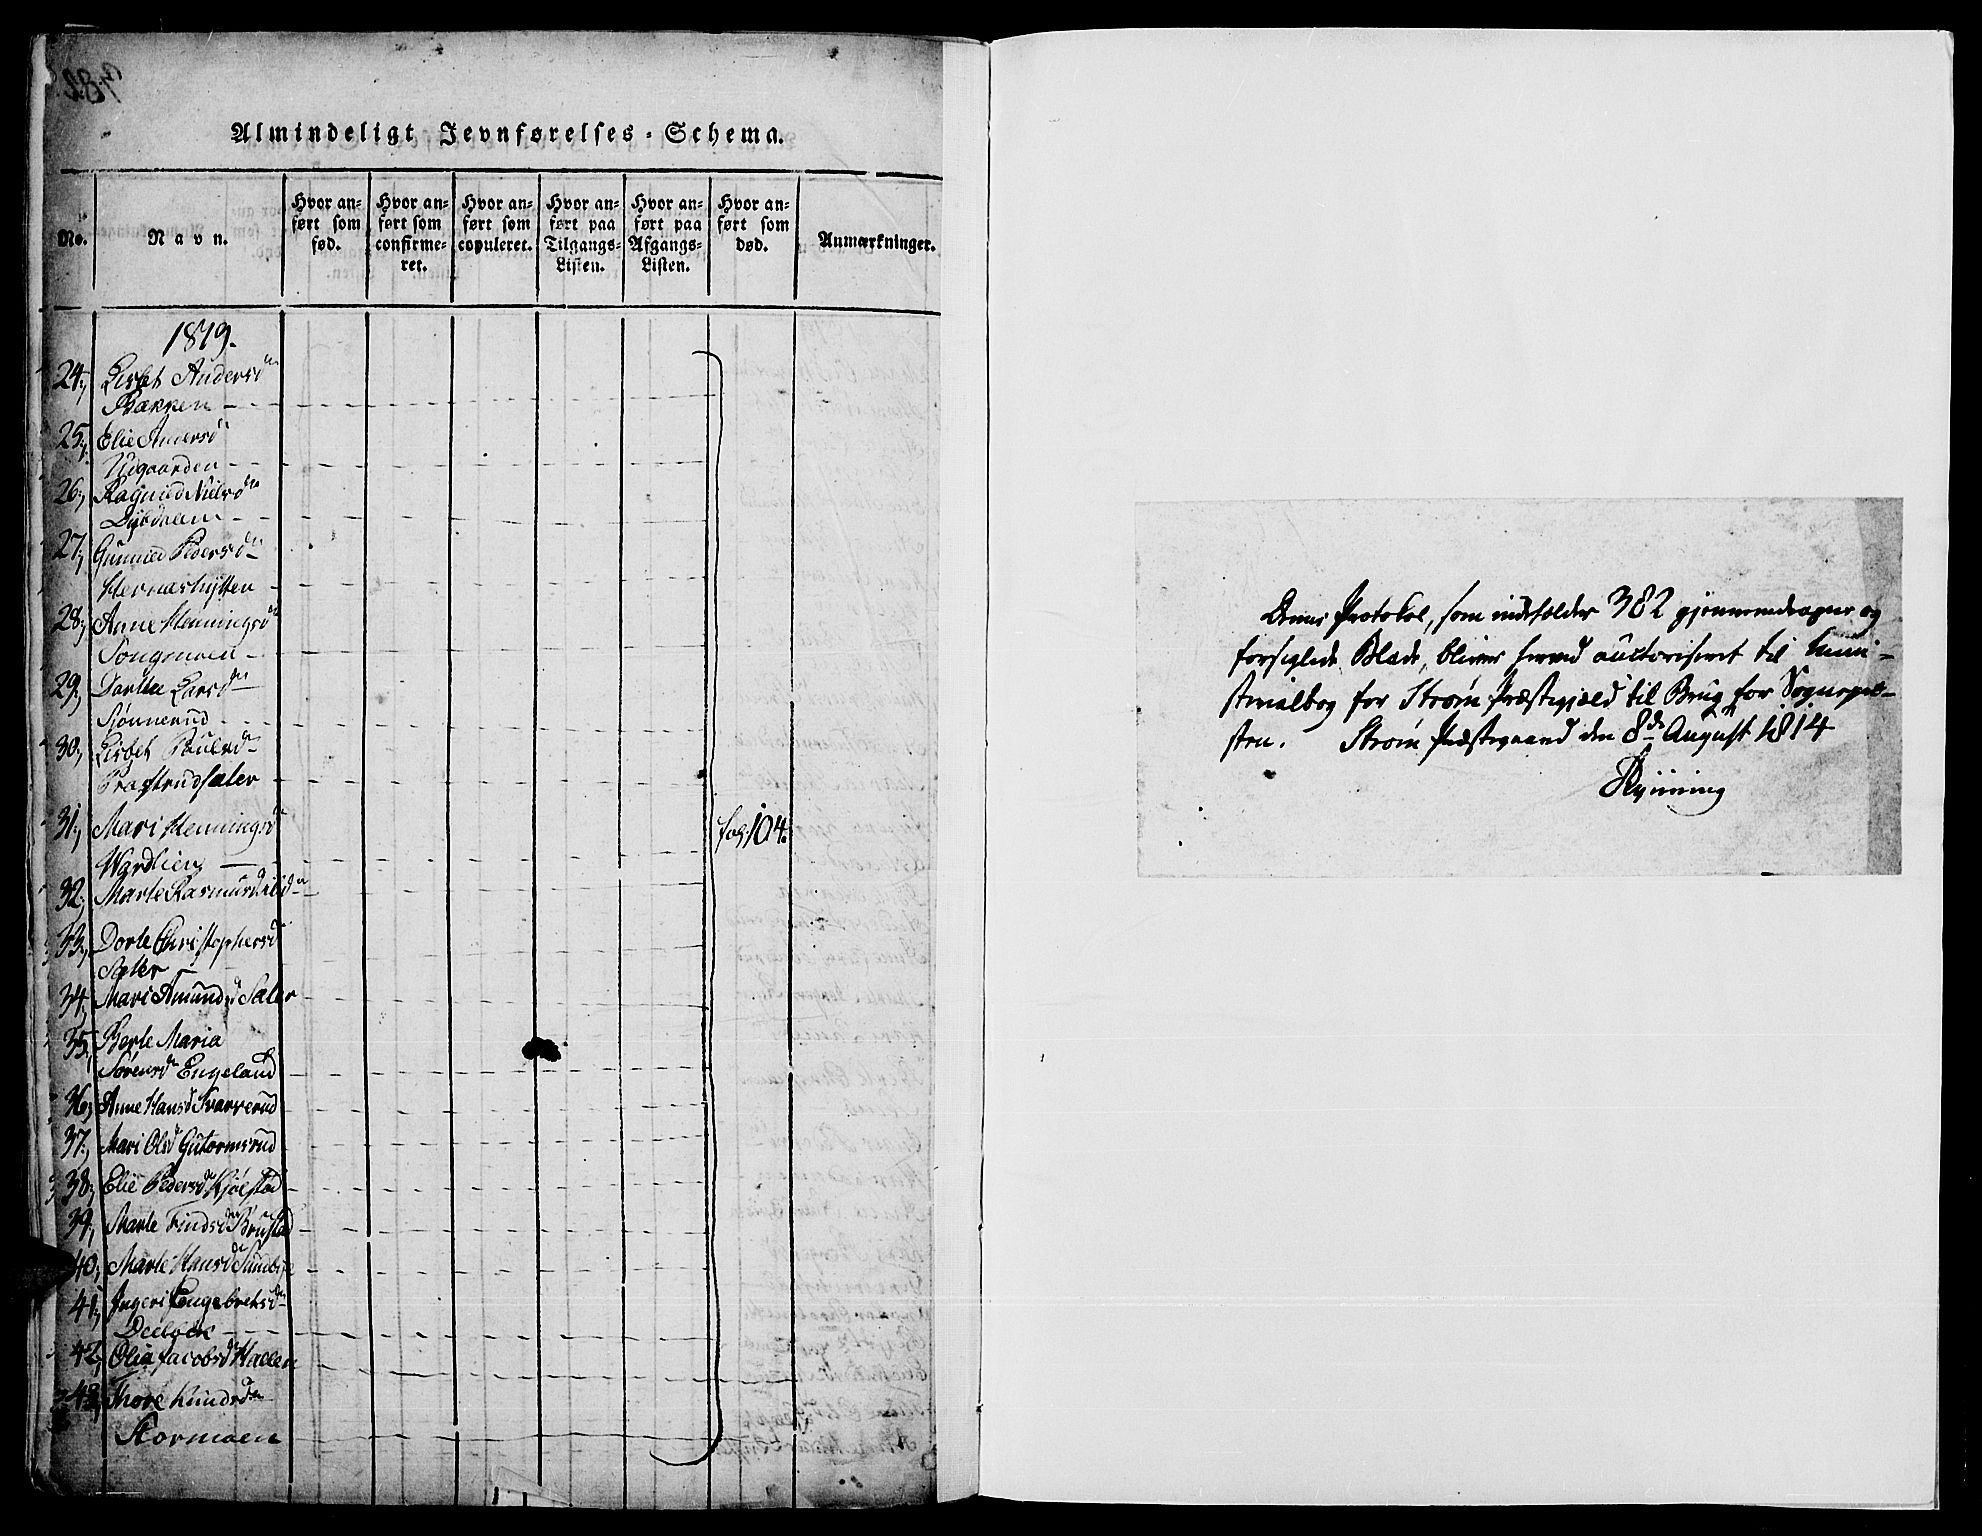 Almindeligt Jevnførelses-Schema.
No.
Navn.
Hvor an-
ført som
fød.
Hvor an-
ført som
confirme-
ret.
Hvor an-
ført som
copuleret.
Hvor an-
ført paa
Tilgangs-
Listen.
Hvor an-
ført paa
Afgangs-
Listen.
Hvor an-
ført som
død.
Anmærkninger.
1819.
24, Lisbet Andersdn
Bakken
25, Elie Amersd
Udgaarden
26, Ragnild Nielsdn
Dybdalen
27, Gunnild Pedersdn
Hernæshytten
28, Anne Henningsdn
Tongmoen
29, Dorthe Larsdn
Sjønnerud
30, Lisbet Poulsd
Prastrudsæter
31, Mari Henningsd fol; 104.
Wardlien
32, Marte Rasmusd
33, Dorte Christophersd
Sæter
34, Mari Amundsd Sæter
35, Berte Maria
Sørensdn Engelaud
36, Anne Hansd Svarverud
37, Mari Olsd Gutormsrud
38, Elie Pedersd Kjølstad
39, Marte Findsdn Brustad
40, Marte Hansdn Sundbye
41, Ingeri Engebretsdn
42, Olia Jacobsdn Hallen
43, Thore Knudsdn
Stormoen
Denne Protokol, som indeholder 382 gjennemdragne og
forsiglede Blade, bliver herved auctoriseret til Mini-
sterialbog for Strøm Præstegjeld til Brug for Sognepræ-
sten. Strøm Præstegaard den 8de August 1814